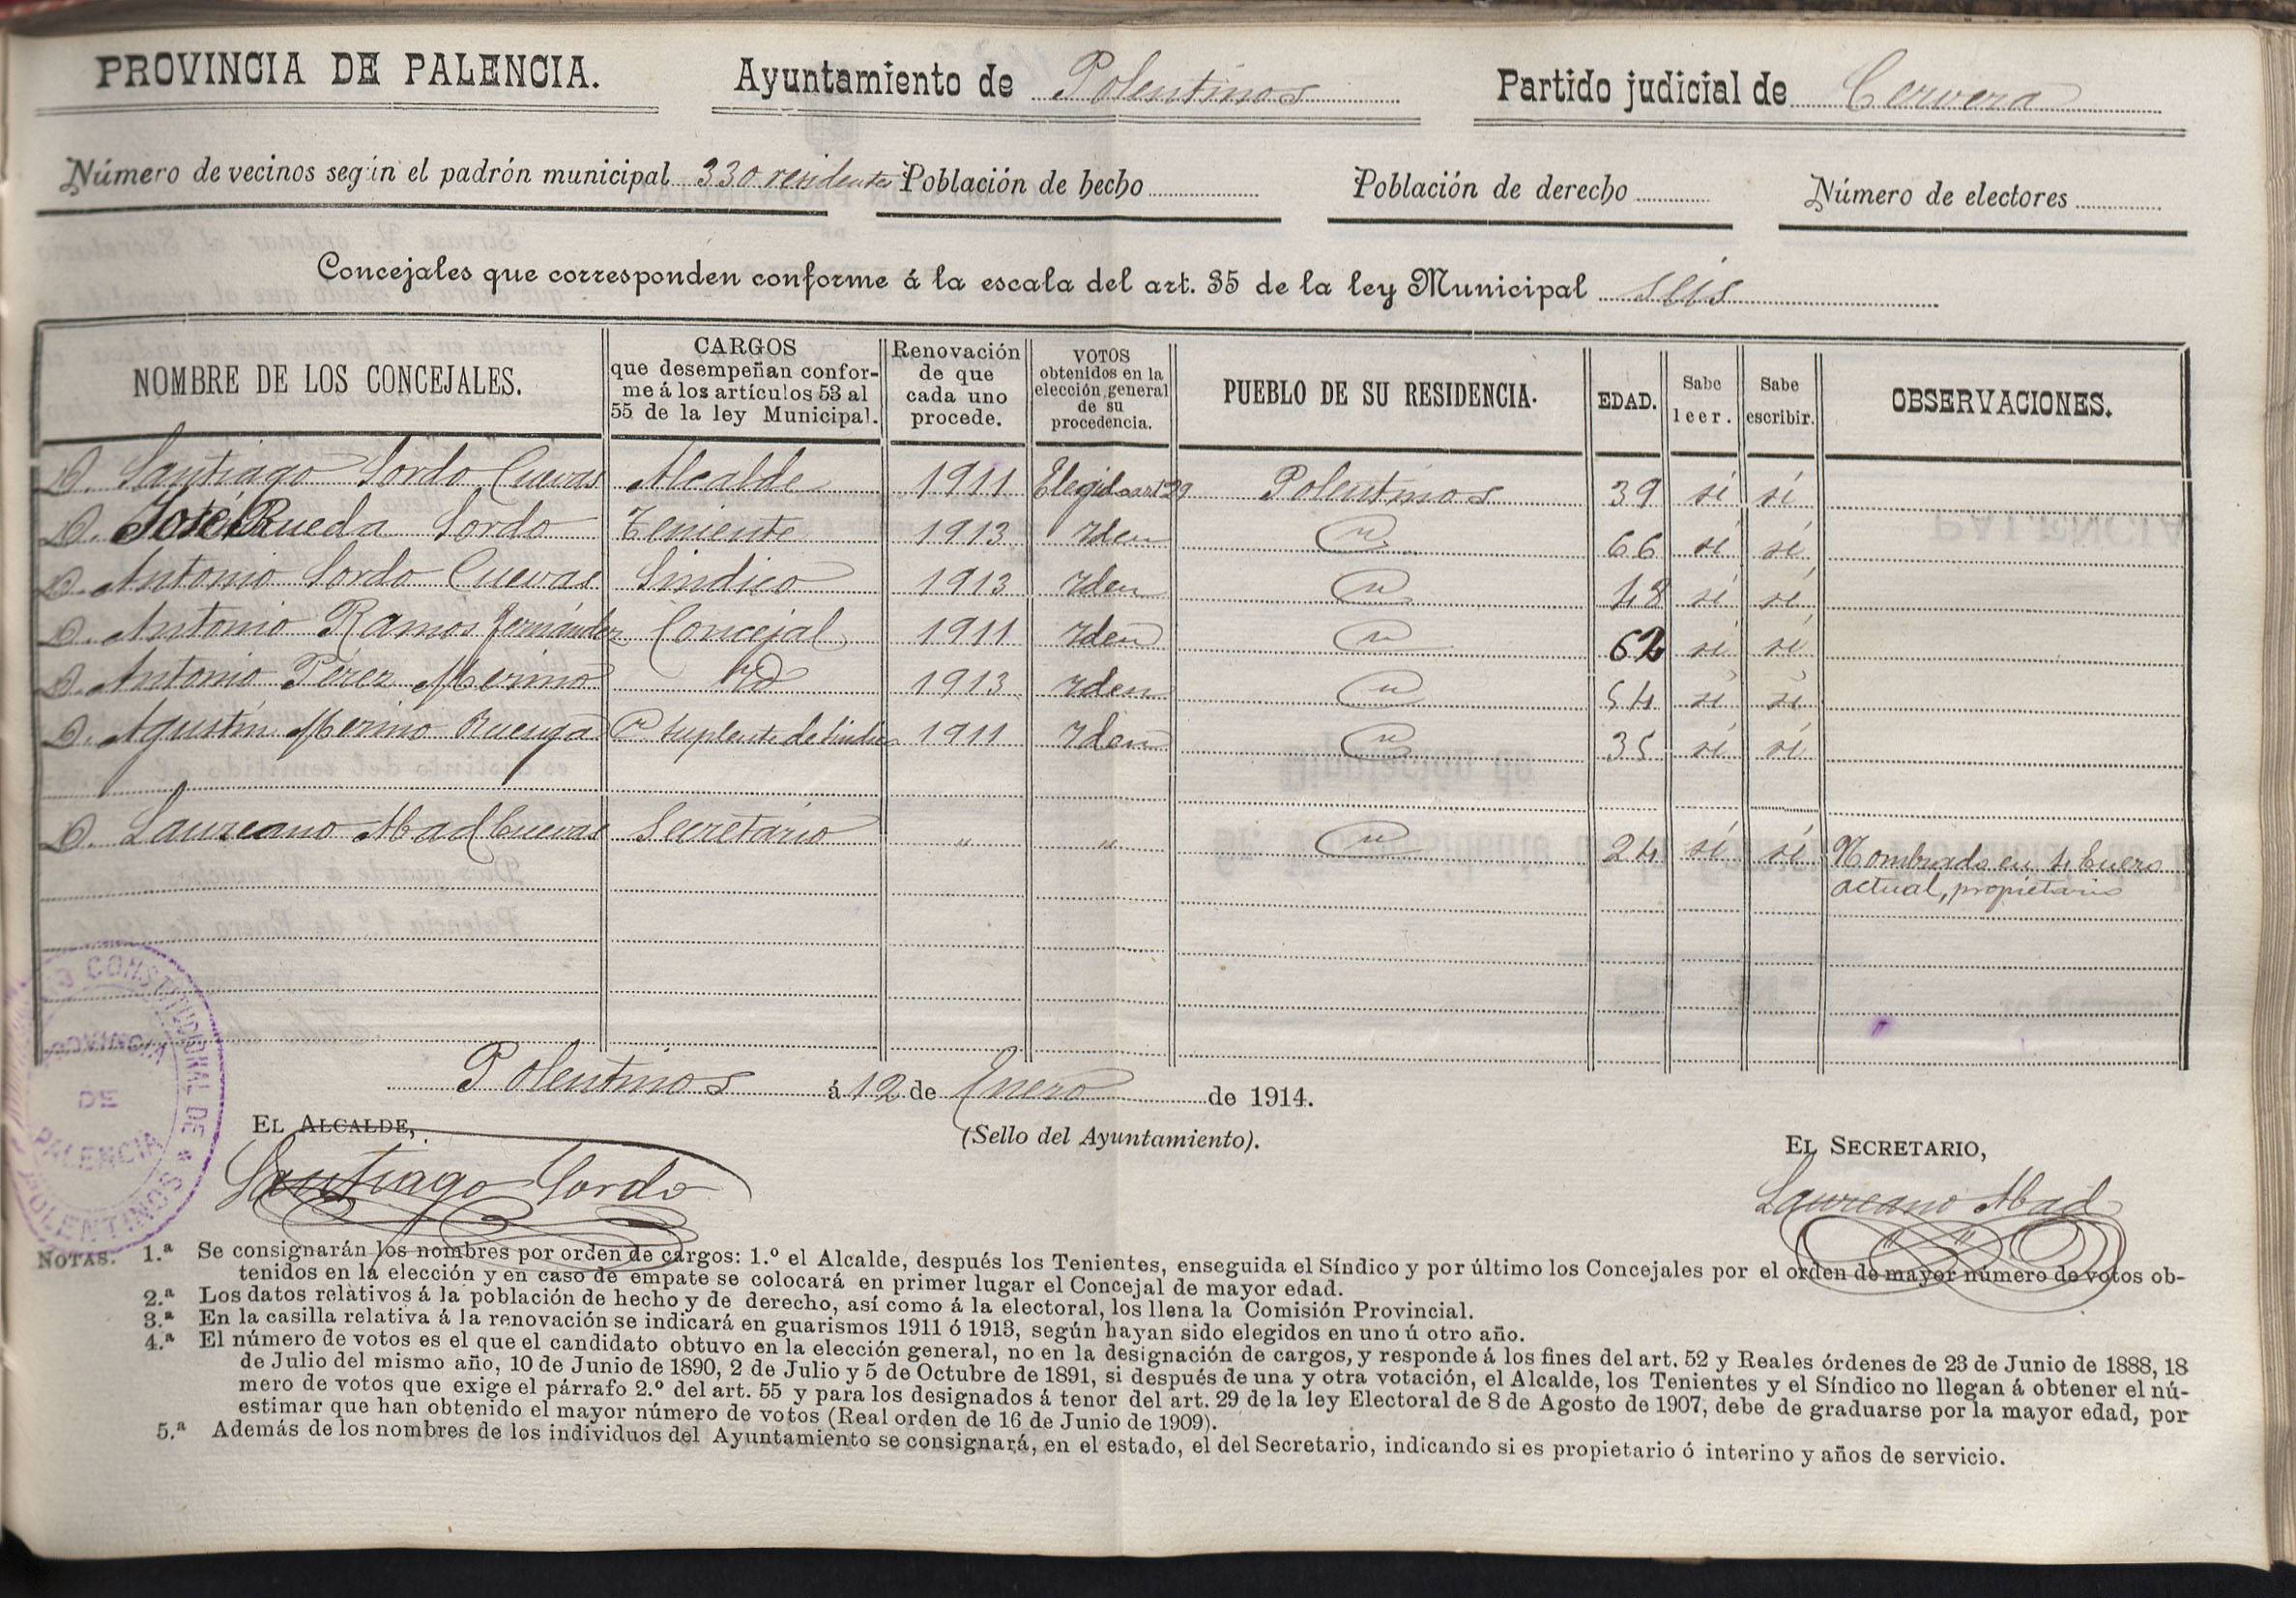 PROVINCIA DE PALENCIA. Ayuntamiento de Polentinos Partido judicial de Cervera
Número de vecinos según el padrón municipal 330 residentes Población de hecho Población de derecho Número de electores
Concejales que corresponden conforme á la escala del art. 35 de la ley Municipal seis
NOMBRE DE LOS CONCEJALES.
CARGOS
que desempeñan confor-
me á los artículos 53 al
55 de la ley Municipal.
Renovación
de que
cada uno
procede.
VOTOS
obtenidos en la
elección general
de su
procedencia.
PUEBLO DE SU RESIDENCIA.
EDAD.
Sabe
leer.
Sabe
escribir.
OBSERVACIONES.
D. Santiago Sordo Cuevas Alcalde 1911 Elegido art 29 Polentinos 39 sí sí
D. José Rueda Sordo Teniente 1913 Iden " 66 sí sí
D. Antonio Sordo Cuevas Sindico 1913 Iden " 48 sí sí
D. Antonio Ramos Fernández Concejal 1911 Iden " 62 sí sí
D. Antonio Pérez Merino id 1913 Iden " 54 sí sí
D. Agustín Merino Ruenga Cº Suplente de Sindico 1911 Iden " 35 sí sí
D. Laureano Abad Cuevas Secretario " " " 24 sí sí Nombrado en 4 Enero
actual, propietario
Polentinos á 12 de Enero de 1914.
EL ALCALDE,
(Sello del Ayuntamiento).
EL SECRETARIO,
Santiago Sordo
Laureano Abad
CONSTITUCIONAL DE POLENTINOS *
PROVINCIA
DE
PALENCIA
NOTAS. 1.ª Se consignarán los nombres por orden de cargos: 1.º el Alcalde, después los Tenientes, enseguida el Síndico y por último los Concejales por el orden de mayor número de votos ob-
tenidos en la elección y en caso de empate se colocará en primer lugar el Concejal de mayor edad.
2.ª Los datos relativos á la población de hecho y de derecho, así como á la electoral, los llena la Comisión Provincial.
3.ª En la casilla relativa á la renovación se indicará en guarismos 1911 ó 1913, según hayan sido elegidos en uno ú otro año.
4.ª El número de votos es el que el candidato obtuvo en la elección general, no en la designación de cargos, y responde á los fines del art. 52 y Reales órdenes de 23 de Junio de 1888, 18
de Julio del mismo año, 10 de Junio de 1890, 2 de Julio y 5 de Octubre de 1891, si después de una y otra votación, el Alcalde, los Tenientes y el Síndico no llegan á obtener el nú-
mero de votos que exige el párrafo 2.º del art. 55 y para los designados á tenor del art. 29 de la ley Electoral de 8 de Agosto de 1907, debe de graduarse por la mayor edad, por
estimar que han obtenido el mayor número de votos (Real orden de 16 de Junio de 1909).
5.ª Además de los nombres de los individuos del Ayuntamiento se consignará, en el estado, el del Secretario, indicando si es propietario ó interino y años de servicio.